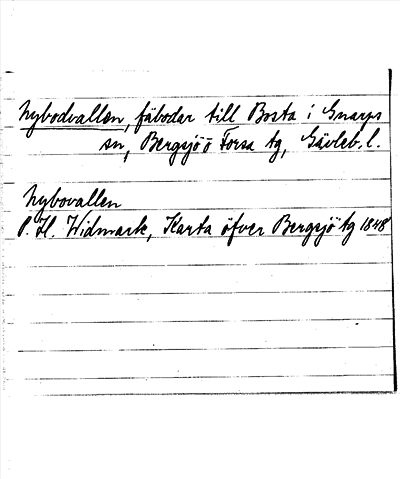 Nybodvallen, fäbodar till Bosta i Gnarps
sn, Bergsjö o Forsa tg, Gävleb. l.
Nybovallen
P. H. Widmark, Karta öfver Bergsjö tg 1848